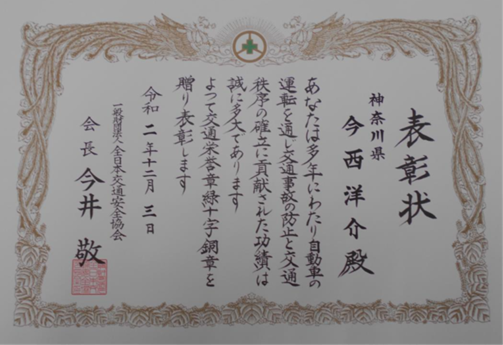 表彰状
神奈川県
今西洋介殿
あなたは多年にわたり自動車の
運転を通し交通事故の防止と交通
秩序の確立に貢献された功績は
誠に多大であります
よつて交通栄誉章緑十字銅章を
贈り表彰します
令和二年十二月三日
一般財団法人全日本交通安全協会
会長 今井 敬